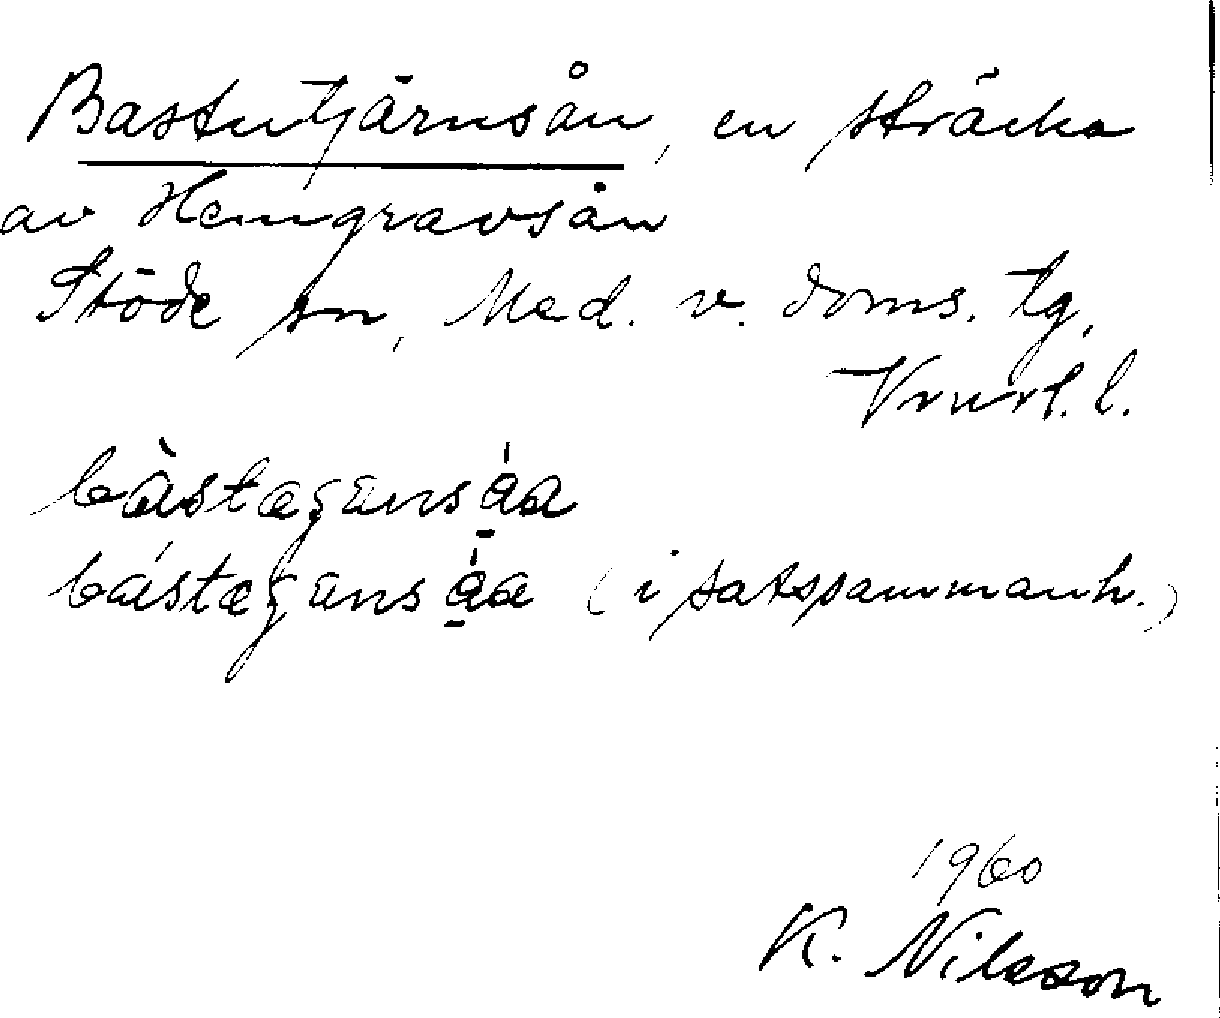 Bastutjärnsån, en sträcka
av Hemgravsån
Stöde sn, Med. v. doms. tg,
Vnrl. l.
bàstaʒanså̱a
bástaʒanså̱a (i satssammanh.)
1960
K. Nilsson